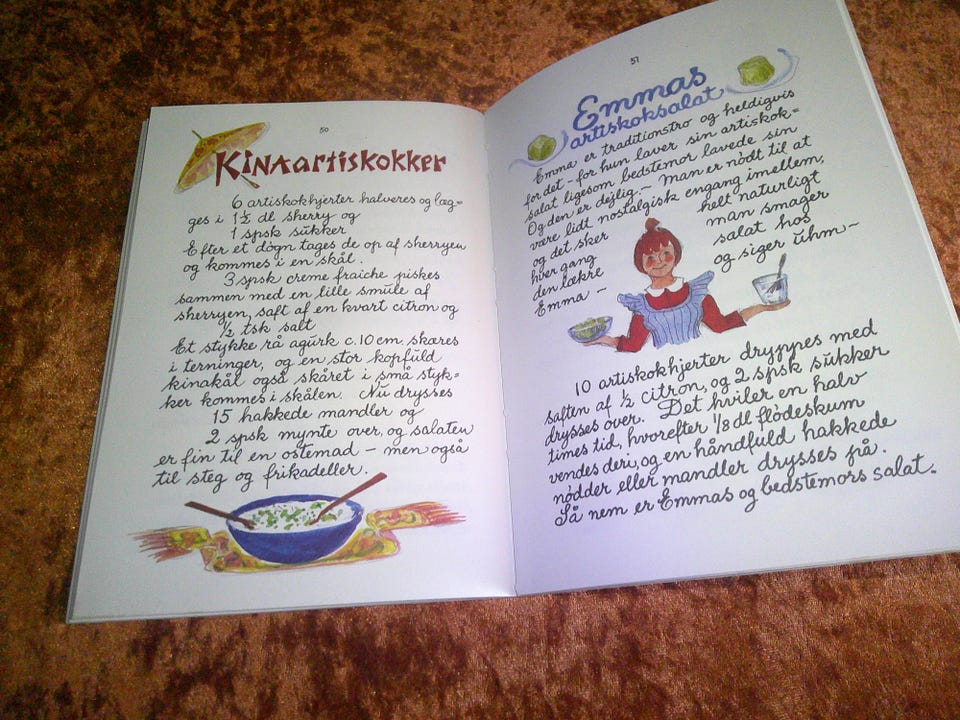 50
Kinaartiskokker
6 artiskokhjerter halveres og læg=
ges i 1½ dl sherry og
1 spsk sukker
Efter et døgn tages de op af sherryen
og kommes i en skål.
3 spsk creme fraiche piskes
sammen med en lille smule af
sherryen, saft af en kvart citron og
½ tsk salt
Et stykke rå agurk c. 10 cm. skares
i terninger, og en stor kopfuld
kinakål også skåret i små styk=
ker kommes i skålen. Nu drysses
15 hakkede mandler og
2 spsk mynte over, og salaten
er fin til en ostemad – men også
til steg og frikadeller.
51
Emmas
artiskoksalat
Emma er traditionstro og heldigvis
for det – for hun laver sin artiskok=
salat ligesom bedstemor lavede sin
Og den er dejlig. – Man er nødt til at
være lidt nostalgisk engang imellem,
og det sker helt naturligt
hver gang man smager
den lækre salat hos
Emma – og siger uhm –
10 artiskokhjerter dryppes med
saften af ½ citron, og 2 spsk sukker
drysses over. Det hviler en halv
times tid, hvorefter ⅛ dl flødeskum
vendes deri, og en håndfuld hakkede
nødder eller mandler drysses på.
Så nem er Emmas og bedstemors salat.